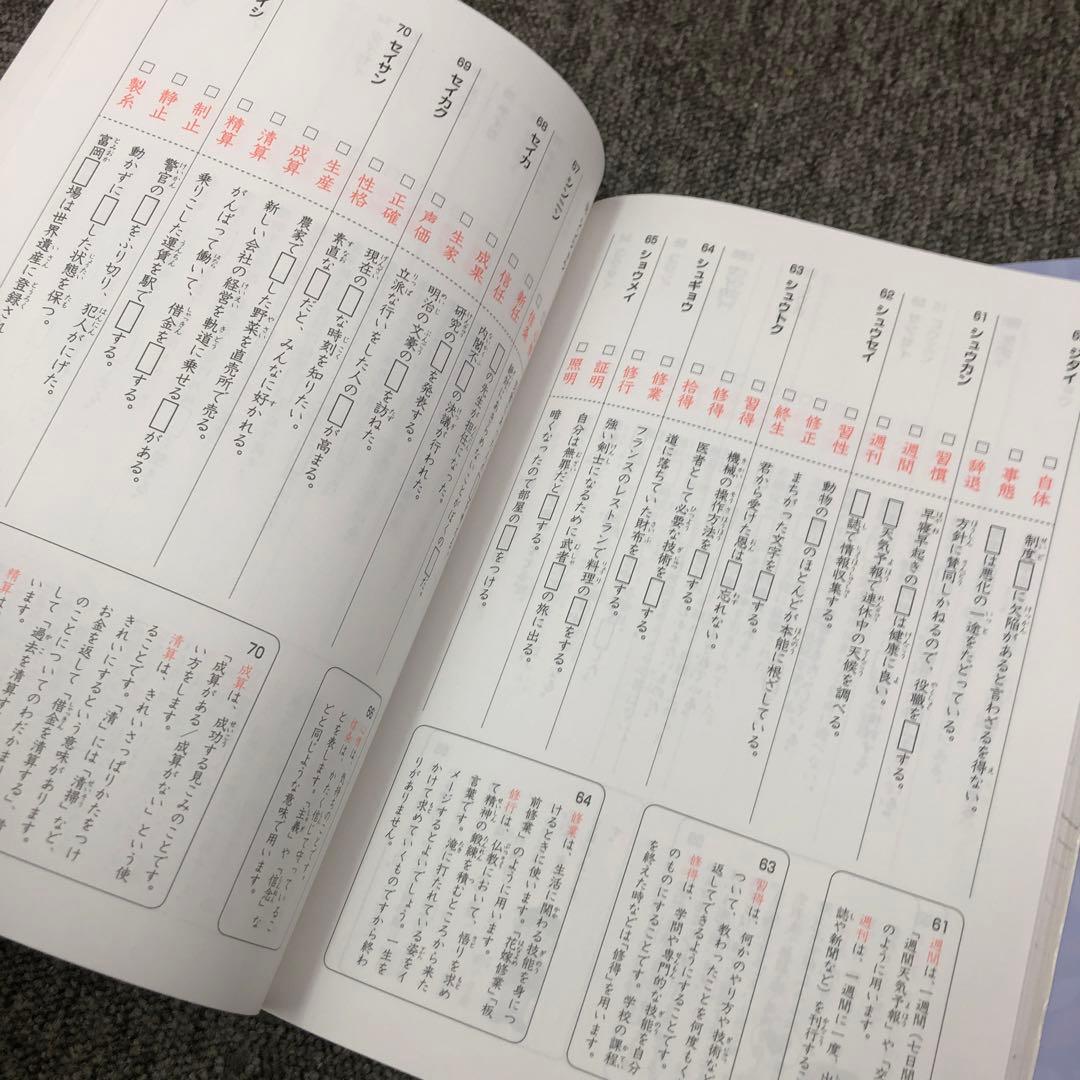 自体
制度□に欠陥があると言わざるを得ない。
事態
□は悪化の一途をたどっている。
辞退
方針に賛同しかねるので、役職を□する。
61 シュウカン
習慣
早寝早起きの□は健康に良い。
週間
□天気予報で連休中の天候を調べる。
週刊
□誌で情報収集する。
62 シュウセイ
習性
動物の□のほとんどが本能に根ざしている。
修正
まちがった文字を□する。
終生
君から受けた恩は□忘れない。
63 シュウトク
習得
機械の操作方法を□する。
修得
医者として必要な技術を□する。
拾得
道に落ちていた財布を□する。
64 シュギョウ
修業
フランスのレストランで料理の□をする。
修行
強い剣士になるために武者□の旅に出る。
65 ショウメイ
証明
自分は無罪だと□する。
照明
暗くなったので部屋の□をつける。
61
週間は、一週間（七日間
「週間天気予報」や「交
のように用います。
週刊は、一週間に一度、出
誌や新聞など）を刊行するこ
63
習得は、何かのやり方や技術など
ついて、教わったことを何度もく
返してできるようにすることです。
修得は、学問や専門的な技能を自分
のものにすることです。学校の課程
を終えた時などは「修得」を用います。
64
修業は、生活に関わる技能を身につ
けるときに使います。「花嫁修業」「板
前修業」のように用います。
修行は、仏教において、悟りを求め
て精神の鍛練を積むところから来た
言葉です。滝に打たれている姿をイ
メージするとよいでしょう。一生を
かけて求めていくものですから終わ
りがありません。
信任
新任
68 セイカ
成果
研究の□を発表する。
生家
明治の文豪の□を訪ねた。
声価
立派な行いをした人の□が高まる。
69 セイカク
正確
現在の□な時刻を知りたい。
性格
素直な□だと、みんなに好かれる。
70 セイサン
生産
農家で□した野菜を直売所で売る。
成算
新しい会社の経営を軌道に乗せる□がある。
清算
がんばって働いて、借金を□する。
精算
乗りこした運賃を駅で□する。
制止
警官の□をふり切り、犯人がにげた。
静止
動かずに□した状態を保つ。
製糸
富岡□場は世界遺産に登録され
70
成算は、成功する見こみのことです。
「成算がある／成算がない」という使
い方をします。
清算は、きれいさっぱりかたをつけ
ることです。「清」には「清掃」など、
きれいにするという意味があります。
お金を返して「借金を清算する」、
のことについてのわだかま
して「過去を清算す
います。
精算は